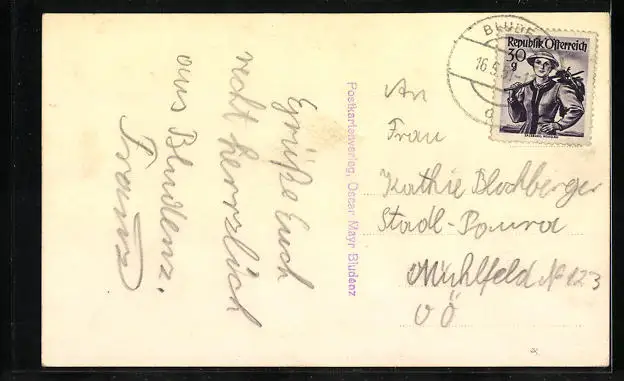 Grüße Euch
recht herzlich
aus Bludenz.
Franz
Postkartenverlag, Oscar Mayr Bludenz
BLUDE
16.5.
Republik Österreich
30
g
An
Frau
Kathie Blochberger
Stadl-Paura
Mühlfeld № 123
OÖ